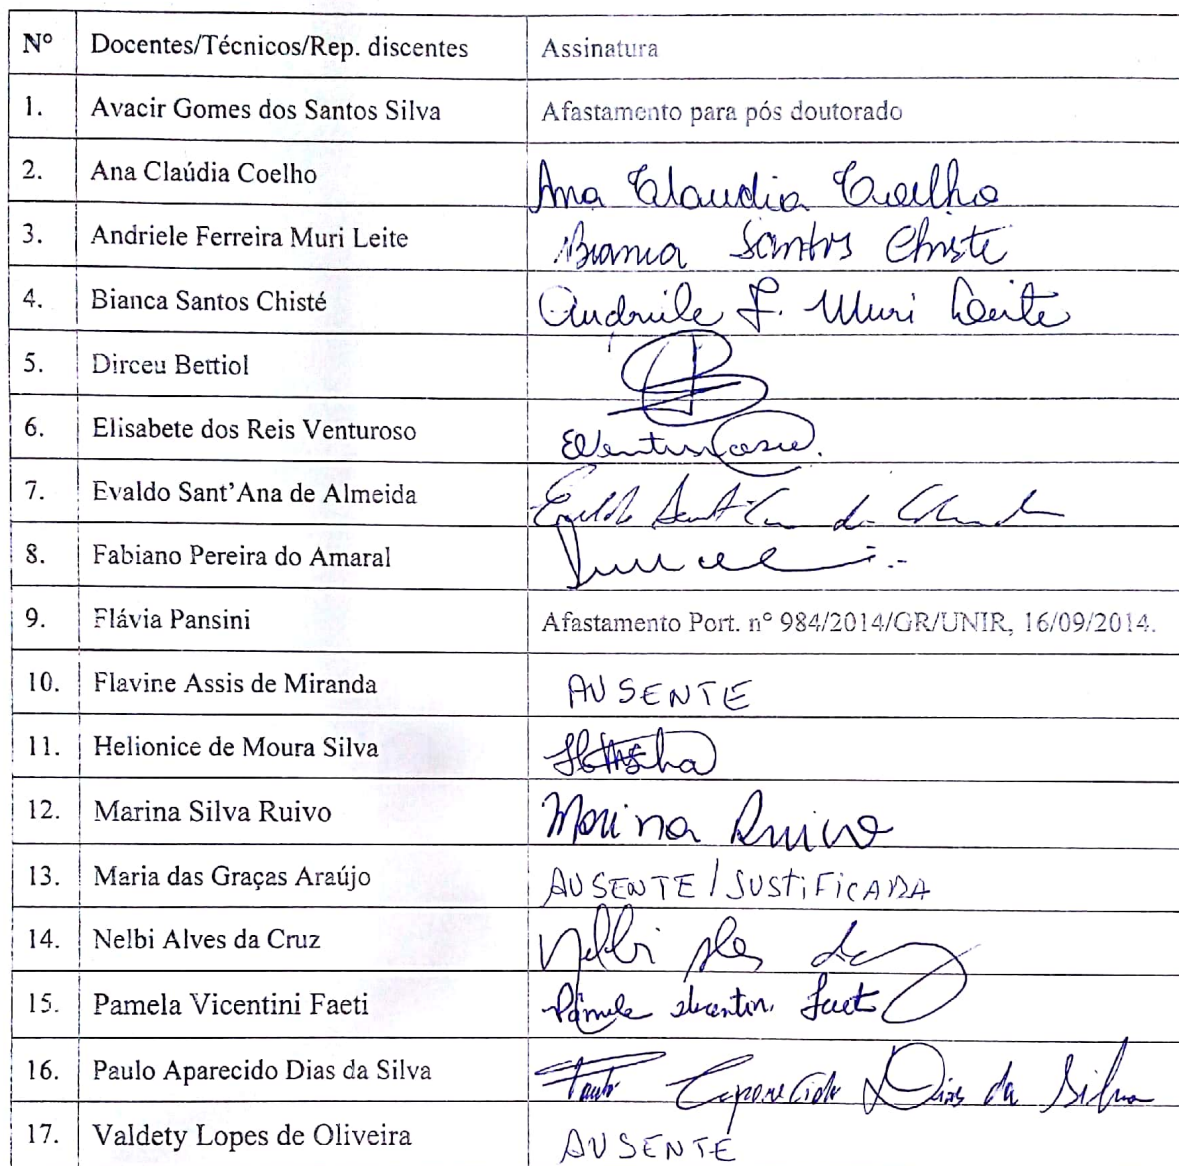 Nº Docentes/Técnicos/Rep. discentes Assinatura
1. Avacir Gomes dos Santos Silva Afastamento para pós doutorado
2. Ana Claúdia Coelho Ana Claudia Coelho
3. Andriele Ferreira Muri Leite Bianca Santos Chisté
4. Bianca Santos Chisté Andriele F. Muri Leite
5. Dirceu Bettiol
6. Elisabete dos Reis Venturoso EVenturoso.
7. Evaldo Sant'Ana de Almeida Evaldo Sant'Ana de Almeida
8. Fabiano Pereira do Amaral
9. Flávia Pansini Afastamento Port. nº 984/2014/GR/UNIR, 16/09/2014.
10. Flavine Assis de Miranda AUSENTE
11. Helionice de Moura Silva
12. Marina Silva Ruivo Marina Ruivo
13. Maria das Graças Araújo AUSENTE/JUSTIFICADA
14. Nelbi Alves da Cruz Nelbi Alves da
15. Pamela Vicentini Faeti Pâmela Vicentini Faeti
16. Paulo Aparecido Dias da Silva Paulo Aparecido Dias da Silva
17. Valdety Lopes de Oliveira AUSENTE